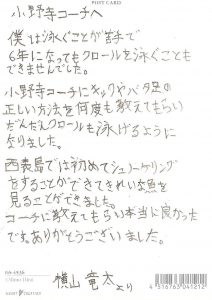 POST CARD
小野寺コーチへ
僕は泳ぐことが苦手で
6年になってもクロールを泳ぐことも
できませんでした。
小野寺コーチにキックやバタ足の
正しい方法を何度も教えてもらい
だんだんクロールも泳げるように
なりました。
西表島では初めてシュノーケリング
をすることができてきれいな魚を
見ることができました。
コーチに教えてもらい本当に良かった
です。ありがとうございました。
横山 竜太より
4516765041212